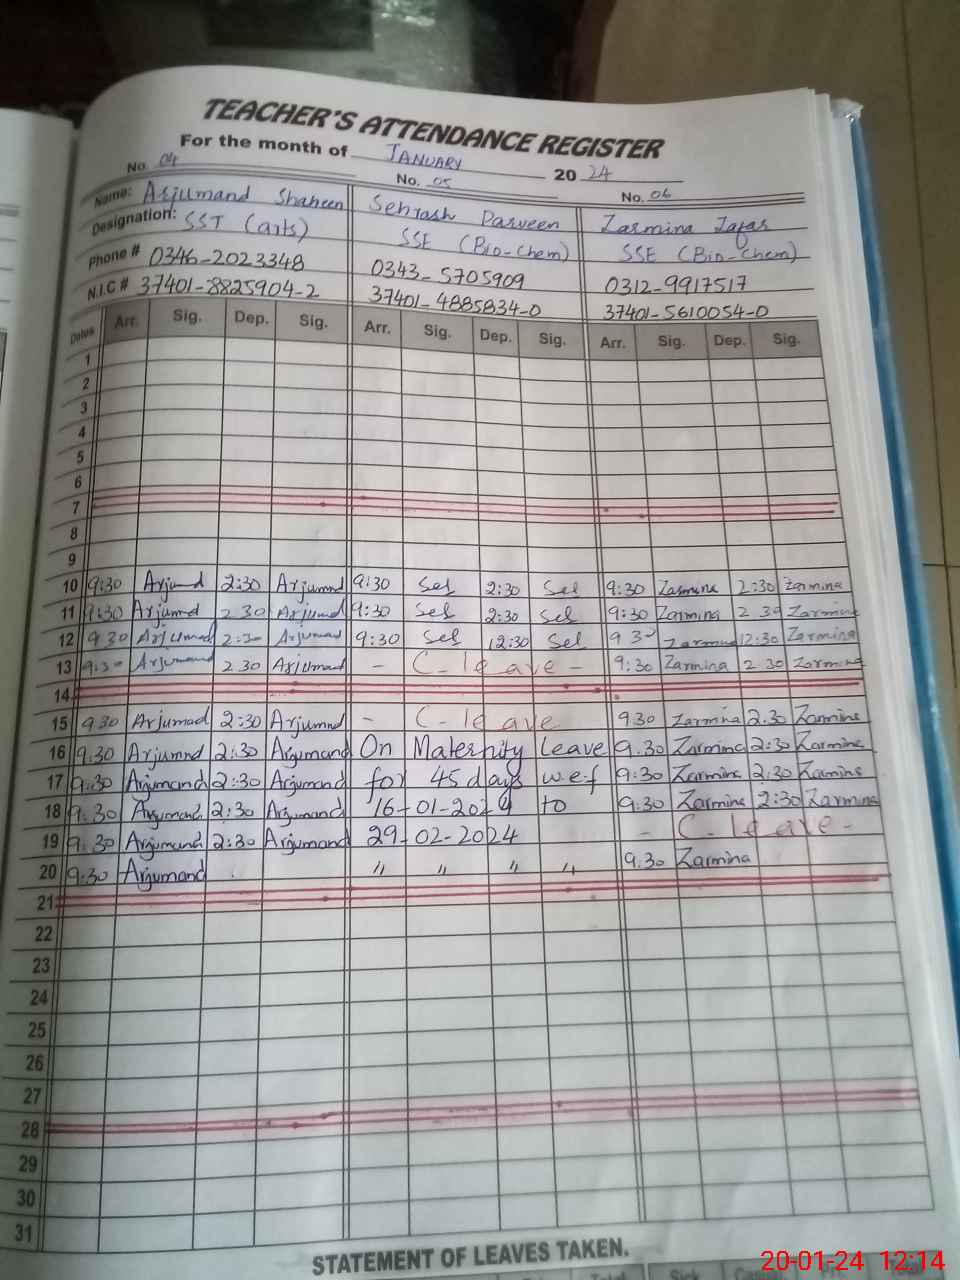 TEACHER'S ATTENDANCE REGISTER
For the month of JANUARY 2024
No. 04 No. 05 No. 06
Name: Arjumand Shaheen Sehrash Parveen Zarmina Zafar
Designation: SST (arts) SSE (Bio-Chem) SSE (Bio-Chem)
Phone # 0346-2023348 0343-5705909 0312-9917517
N.I.C # 37401-8825904-2 37401-4885834-0 37401-5610054-0
Dates Arr. Sig. Dep. Sig. Arr. Sig. Dep. Sig. Arr. Sig. Dep. Sig.
1
2
3
4
5
6
7
8
9
10 9:30 Arjumd 2:30 Arjumnd 9:30 Seh 2:30 Seh 9:30 Zarmina 2:30 Zarmina
11 9:30 Arjumnd 2 30 Arjumnd 9:30 Seh 2:30 Seh 9:30 Zarmina 2 30 Zarmina
12 9 30 Arjumad 2:30 Arjumad 9:30 Seh 12:30 Seh 9 30 Zarmina 12:30 Zarmina
13 9:30 Arjumand 2 30 Arjumad - C- leave - 9:30 Zarmina 2 30 Zarmina
14
15 9 30 Arjumad 2:30 Arjumnd - C- leave 9 30 Zarmina 2.30 Zarmina
16 9.30 Arjumnd 2:30 Arjumand On Maternity Leave 9.30 Zarmina 2:30 Zarmina
17 9:30 Arjumand 2:30 Arjumand for 45 days w.e.f 9:30 Zarmina 2:30 Zarmina
18 9:30 Arjumand 2:30 Arjumand 16-01-2024 to 9:30 Zarmina 2:30 Zarmina
19 9:30 Arjumand 2:30 Arjumand 29-02-2024 - C- leave -
20 9:30 Arjumand " " " " 9:30 Zarmina
21
22
23
24
25
26
27
28
29
30
31
STATEMENT OF LEAVES TAKEN.
Total Sick
20-01-24 12:14